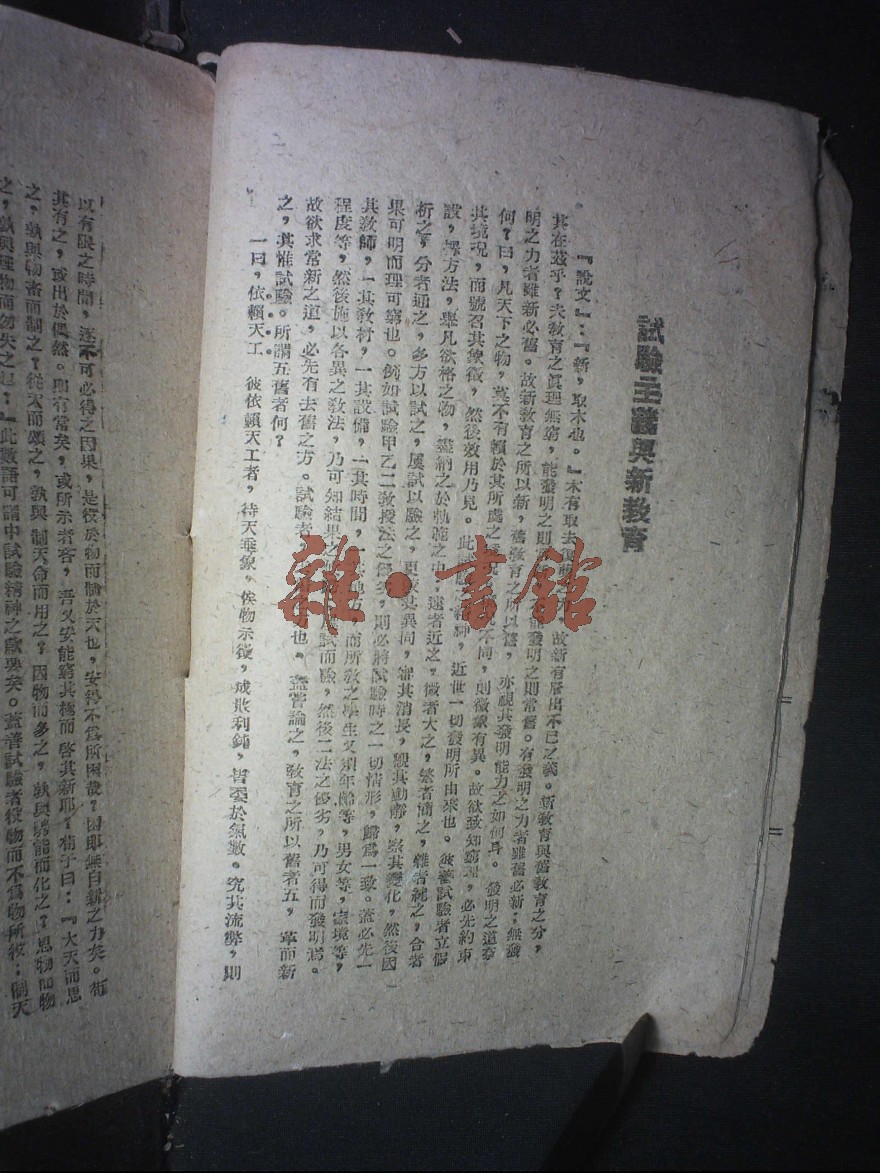 試驗主義與新教育
『說文』:『新,取木也。』木有取去復萌之,故新有層出不已之義。新教育與舊教育之分,
其在茲乎?夫敎育之眞理無窮,能發明之則常,能發明之則常舊。有發明之力者雖舊必新;無發
明之力者雖新必舊。故新敎育之所以新,舊敎育之所以舊,亦視其發明能力之如何耳。發明之道奈
何?曰,凡天下之物,莫不有賴於其所處之不同,則徵象有異。故欲致知窮理,必先約束
其境况,而號召其象徵,然後效用乃見。此神,近世一切發明所由來也。彼善試驗者立假
設,擇方法,舉凡欲格之物,盡納之於軌範之中,遠者近之,微者大之,繁者簡之,雜者純之,合者
析之,分者通之,多方以試之,屢試以驗之,更較其異同,審其消長,觀其動靜,察其變化,然後因
果可明而理可窮也。例如試驗甲乙二敎授法之優劣,則必將試驗時之一切情形,歸爲一致。蓋必先一
其敎師,一其敎材,一其設備,一其時間,一地方,而所敎之學生又須年齡等,男女等,家境等,
程度等,然後施以各異之敎法,乃可知結果之試而驗,然後二法之優劣,乃可得而發明焉。
故欲求常新之道,必先有去舊之方。試驗者,也。蓋嘗論之,敎育之所以舊者五,革而新
之,其惟試驗。所謂五舊者何?
一曰,依賴天工 彼依賴天工者,待天垂象,俟物示徵,成敗利鈍,皆委於氣數。究其流弊,則
以有限之時間,逐不可必得之因果,是役於物而制於天也,安得不爲所困哉?困卽無自新之力矣。荀
其有之,或出於偶然。卽有常矣,或所示者吝,吾又安能窮其極而啓其新耶?荀子曰:『大天而思
之,孰與物畜而制之?從天而頌之,孰與制天命而用之?因物而多之,孰與騁能而化之?思物而物
之,孰與理物而勿失之也?』此數語可謂中試驗精神之歐奧矣。蓋善試驗者役物而不爲物所役;制天
雜·書館